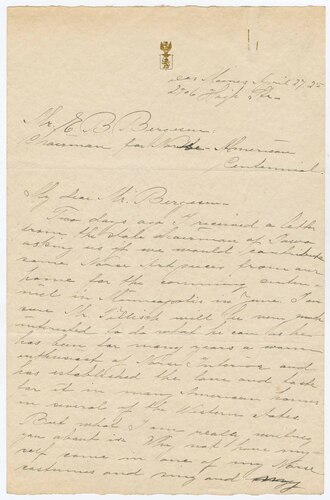 Des Moines April 27, 25
2706 High Str.
Mr. E. B. Bergeson.
Chairman for Norse-American
Centennial.
My dear Mr. Bergeson-
Two days ago I received a letter
from the state chairman of Iowa
asking us if we would contribute
some Norse Art pieces from our
home for the comming centen-
nial in Minneapolis in June. I am
sure Mr. will be very much
interested to do what he can as he
has been for many years a warm
enthusiast of Norse Interior and
has established the love and taste
for it in many American homes
in several of the Western states.
But what I am really writing
you about is: Why not have my-
self come in one of my Norse
costumes and sing and